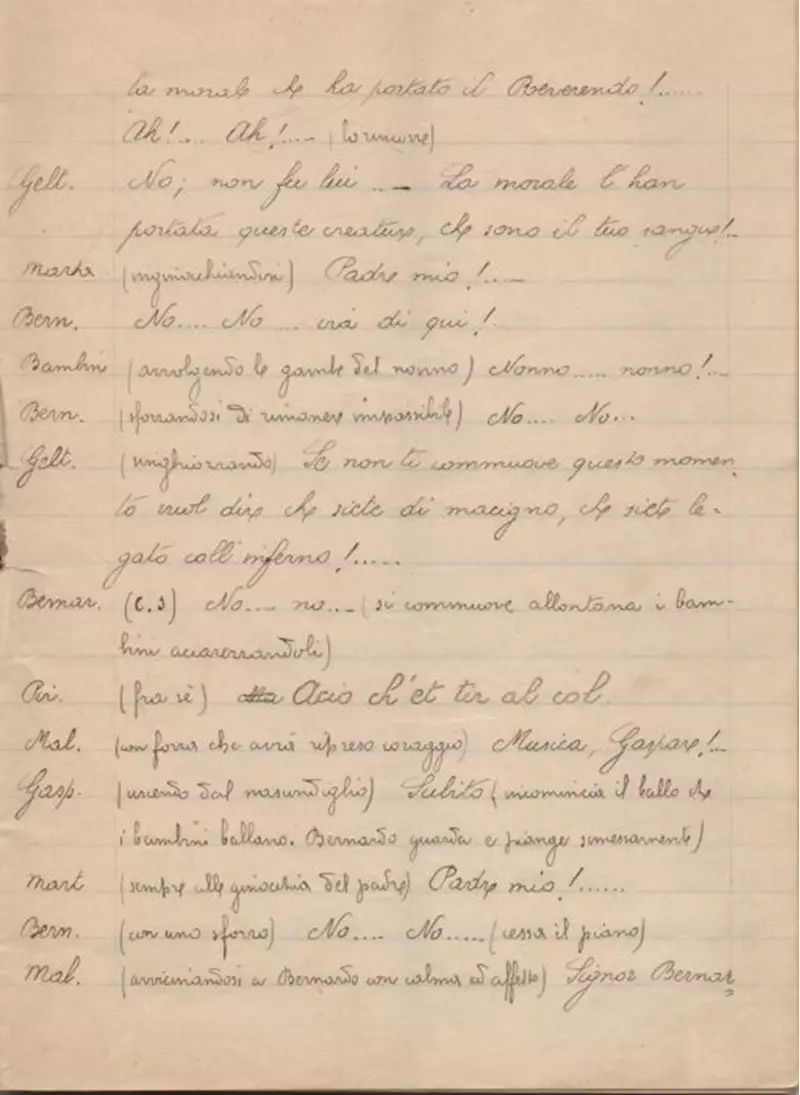 la morale che ha portato il Reverendo!......
Ah!.... Ah!.... (lo rimuove)
Gelt. No; non fu lui ... La morale l'han
portata queste creature, che sono il tuo sangue!..
Marta (inginocchiandosi) Padre mio!....
Bern. No.... No ... via di qui!
Bambini (avvolgendo le gambe del nonno) Nonno..... nonno!...
Bern. (sforzandosi di rimanere impossibile) No.... No...
Gelt. (singhiozzando) Se non ti commuove questo momen
to vuol dire che siete di macigno, che siete le-
gato coll'inferno!.....
Bernar. (c.s) No.... no... (si commuove allontana i bam-
bini accarezzandoli)
Pir. (fra sè) Acio ch'et tir al col
Mal. (con forza che avrà ripreso coraggio) Musica, Gaspare!...
Gasp. (uscendo dal nascondiglio) Subito (incomincia il ballo che
i bambini ballano. Bernardo guarda e piange sommessamente)
Mart (sempre alle ginocchia del padre) Padre mio!......
Bern. (con uno sforzo) No.... No..... (cessa il piano)
Mal. (avvicinandosi a Bernardo con calma ed affetto) Signor Bernar